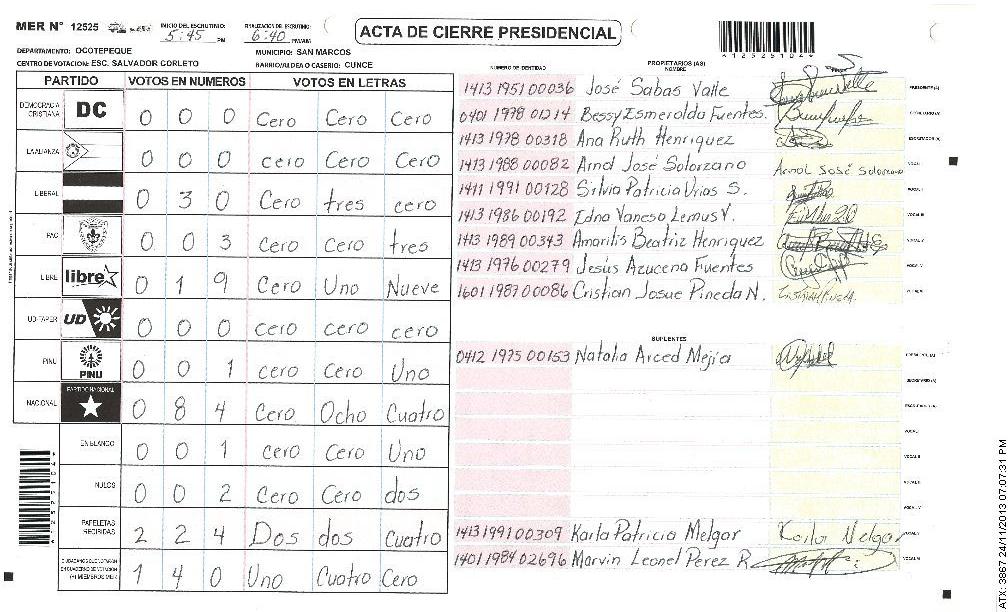 MER N° 12525 INICIO DEL ESCRUTINIO: 5:45 PM FINALIZACION DEL ESCRUTINIO: 6:40 PM/AM
ACTA DE CIERRE PRESIDENCIAL
DEPARTAMENTO: OCOTEPEQUE MUNICIPIO: SAN MARCOS
CENTRO DE VOTACION: ESC. SALVADOR CORLETO BARRIO/ALDEA O CASERIO: CUNCE
PARTIDO VOTOS EN NUMEROS VOTOS EN LETRAS
DEMOCRACIA CRISTIANA DC 0 0 0 Cero Cero Cero
LA ALIANZA 0 0 0 cero Cero Cero
LIBERAL 0 3 0 Cero tres cero
PAC 0 0 3 Cero Cero tres
LIBRE libre 0 1 9 Cero Uno Nueve
UD-FAPER UD 0 0 0 cero cero cero
PINU PINU 0 0 1 cero Cero Uno
NACIONAL PARTIDO NACIONAL 0 8 4 Cero Ocho Cuatro
EN BLANCO 0 0 1 cero Cero Uno
NULOS 0 0 2 Cero Cero dos
PAPELETAS RECIBIDAS 2 2 4 Dos dos Cuatro
1 4 0 Uno Cuatro Cero
NUMERO DE IDENTIDAD PROPIETARIOS (AS) NOMBRE
1413 1951 00036 José Sabas Valle PRESIDENTE (A)
0401 1978 01214 Bessy Esmeralda Fuentes. SECRETARIO (A)
1413 1978 00318 Ana Ruth Henriquez ESCRUTADOR (A)
1413 1988 00082 Arnol José Solorzano Arnol José Solorzano VOCAL I
1411 1991 00128 Silvia Patricia Urias S.
1413 1986 00192 Edna Vanesa Lemus V.
1413 1989 00343 Amarilis Beatriz Henriquez
1413 1976 00279 Jesús Azucena Fuentes
1601 1987 00086 Cristian Josue Pineda N.
SUPLENTES
0412 1975 00153 Natalia Arced Mejia
SECRETARIO (A)
1413 1991 00309 Karla Patricia Melgar Karla Melgar
1401 1984 02696 Marvin Leonel Perez R
A12525104
ATX: 3867 24/11/2013 07:07:31 PM